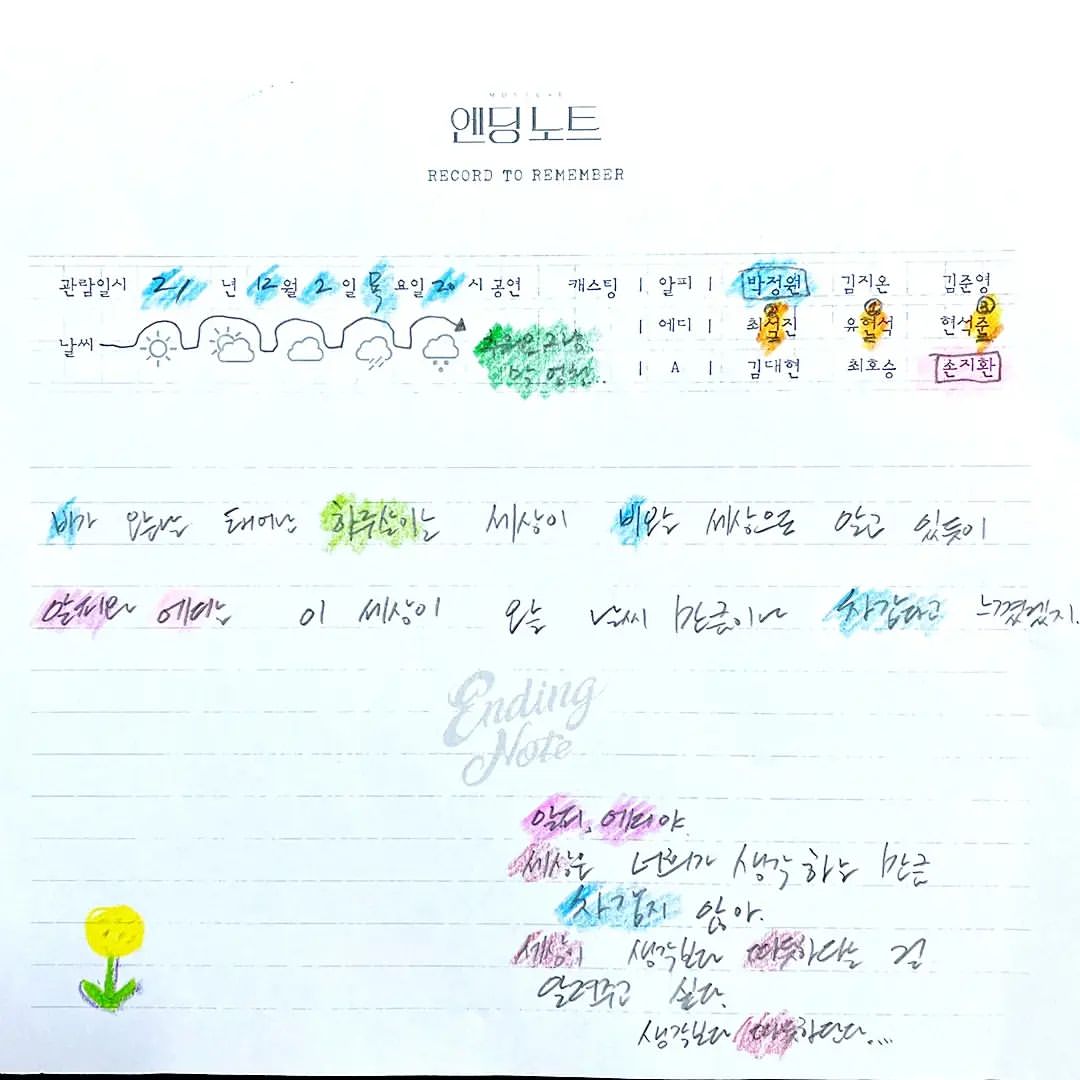 MUSICAL
엔딩노트
RECORD TO REMEMBER
관람일시 21년 12월 2일 목요일 20시 공연 캐스팅 | 알피 | 박정원 김지온 김준영
| 에디 | 최석진 유현석 현석준
날씨
| A | 김대현 최호승 손지환
비가 오는날 태어난 하루살이는 세상이 비오는 세상으로 알고 있듯이
알피와 에디는 이 세상이 오늘 날씨 만큼이나 차갑다고 느꼈겠지.
Ending
Note
알피, 에디야.
세상은 너희가 생각하는 만큼
차갑지 않아.
세상이 생각보다 따듯하다는 걸
알려주고 싶다.
생각보다 따듯하단다...